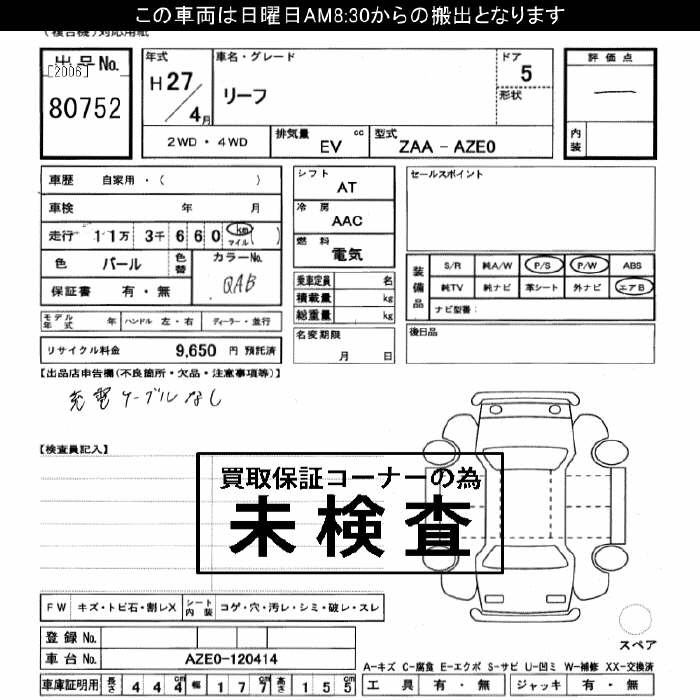 この車両は日曜日AM8:30からの搬出となります
(複合機)対応用紙
出品No.
[2006]
80752
年式
H27/4月
車名・グレード
リーフ
ドア
5
形状
評価点
一
内装
2WD・4WD
排気量 cc
EV
型式
ZAA - AZE0
車歴 自家用・( )
車検 年 月
走行 11万 3千 6 6 0 km マイル ( )
色 パール 色替
カラーNo.
QAB
保証書 有・無
モデル年式 年 ハンドル 左・右 ディーラー・並行
リサイクル料金 9,650 円 預託済
シフト
AT
冷房
AAC
燃料
電気
乗車定員 名
積載量 kg
総重量 kg
名変期限
月 日
セールスポイント
装備品
S/R 純A/W P/S P/W ABS
純TV 純ナビ 革シート 外ナビ エアB
ナビ型番:
後日品
【出品店申告欄(不良箇所・欠品・注意事項等)】
充電ケーブルなし
【検査員記入】
買取保証コーナーの為
未検査
FW キズ・トビ石・割レX シート内装 コゲ・穴・汚レ・シミ・破レ・スレ
登録No.
車台No. AZE0-120414
車庫証明用 長さ 4 4 4 cm 幅 1 7 7 cm 高さ 1 5 5 cm
スペア
A-キズ C-腐食 E-エクボ S-サビ U-凹ミ W-補修 XX-交換済
工具 有・無 ジャッキ 有・無